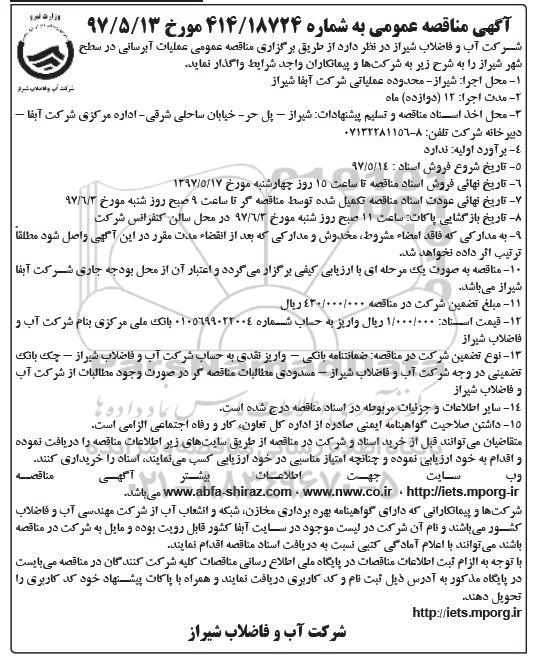 آگهی مناقصه عمومی به شماره ۴۱۴/۱۸۷۲۴ مورخ ۹۷/۵/۱۳
وزارت نیرو
شرکت آب و فاضلاب شیراز
شرکت آب و فاضلاب شیراز در نظر دارد از طریق برگزاری مناقصه عمومی عملیات آبرسانی در سطح
شهر شیراز را به شرح زیر به شرکت‌ها و پیمانکاران واجد شرایط واگذار نماید.
۱- محل اجرا: شیراز- محدوده عملیاتی شرکت آبفا شیراز
۲- مدت اجرا: ۱۲ (دوازده) ماه
۳- محل اخذ اسناد مناقصه و تسلیم پیشنهادات: شیراز – پل حر- خیابان ساحلی شرقی- اداره مرکزی شرکت آبفا –
دبیرخانه شرکت تلفن: ۸-۰۷۱۳۲۲۸۱۱۵۶
۴- برآورد اولیه: ندارد
۵- تاریخ شروع فروش اسناد : ۹۷/۵/۱۴
۶- تاریخ نهائی فروش اسناد مناقصه تا ساعت ۱۵ روز چهارشنبه مورخ ۱۳۹۷/۵/۱۷
۷- تاریخ نهائی عودت اسناد مناقصه تکمیل شده توسط مناقصه گر تا ساعت ۹ صبح روز شنبه مورخ ۹۷/۶/۳
۸- تاریخ بازگشایی پاکات: ساعت ۱۱ صبح روز شنبه مورخ ۹۷/۶/۳ در محل سالن کنفرانس شرکت
۹- به مدارکی که فاقد امضاء مشروط، مخدوش و مدارکی که بعد از انقضاء مدت مقرر در این آگهی واصل شود مطلقاً
ترتیب اثر داده نخواهد شد.
۱۰- مناقصه به صورت یک مرحله ای با ارزیابی کیفی برگزار می‌گردد و اعتبار آن از محل بودجه جاری شرکت آبفا
شیراز می‌باشد.
۱۱- مبلغ تضمین شرکت در مناقصه ۴۳۰/۰۰۰/۰۰۰ ریال
۱۲- قیمت اسناد: ۱/۰۰۰/۰۰۰ ریال واریز به حساب شماره ۰۱۰۵۶۹۹۰۲۲۰۰۴ بانک ملی مرکزی بنام شرکت آب و
فاضلاب شیراز
۱۳- نوع تضمین شرکت در مناقصه: ضمانتنامه بانکی – واریز نقدی به حساب شرکت آب و فاضلاب شیراز – چک بانک
تضمینی در وجه شرکت آب و فاضلاب شیراز – مسدودی مطالبات مناقصه گر در صورت وجود مطالبات از شرکت آب
و فاضلاب شیراز
۱۴- سایر اطلاعات و جزئیات مربوطه در اسناد مناقصه درج شده است.
۱۵- داشتن صلاحیت گواهینامه ایمنی صادره از اداره کل تعاون، کار و رفاه اجتماعی الزامی است.
متقاضیان می‌توانند قبل از خرید اسناد و شرکت در مناقصه از طریق سایت‌های زیر اطلاعات مناقصه را دریافت نموده
و اقدام به خود ارزیابی نموده و چنانچه امتیاز مناسبی در خود ارزیابی کسب می‌نمایند، اسناد را خریداری کنند.
وب سایت جهت اطلاعات بیشتر آگهی مناقصه
http://iets.mporg-ir ، www.nww.co.ir ، www.abfa-shiraz.com می‌باشد.
شرکت‌ها و پیمانکارانی که دارای گواهینامه بهره برداری مخازن، شبکه و انشعاب آب از شرکت مهندسی آب و فاضلاب
کشور می‌باشند و نام آن شرکت در لیست موجود در سایت آبفا کشور قابل رویت بوده و مایل به شرکت در مناقصه
باشند می‌توانند با اعلام آمادگی کتبی نسبت به دریافت اسناد مناقصه اقدام نمایند.
با توجه به الزام ثبت اطلاعات مناقصات در پایگاه ملی اطلاع رسانی مناقصات کلیه شرکت کنندگان در مناقصه می‌بایست
در پایگاه مذکور به آدرس ذیل ثبت نام و کد کاربری دریافت نمایند و همراه با پاکات پیشنهاد خود کد کاربری را
تحویل دهند.
http://iets.mporg.ir
شرکت آب و فاضلاب شیراز